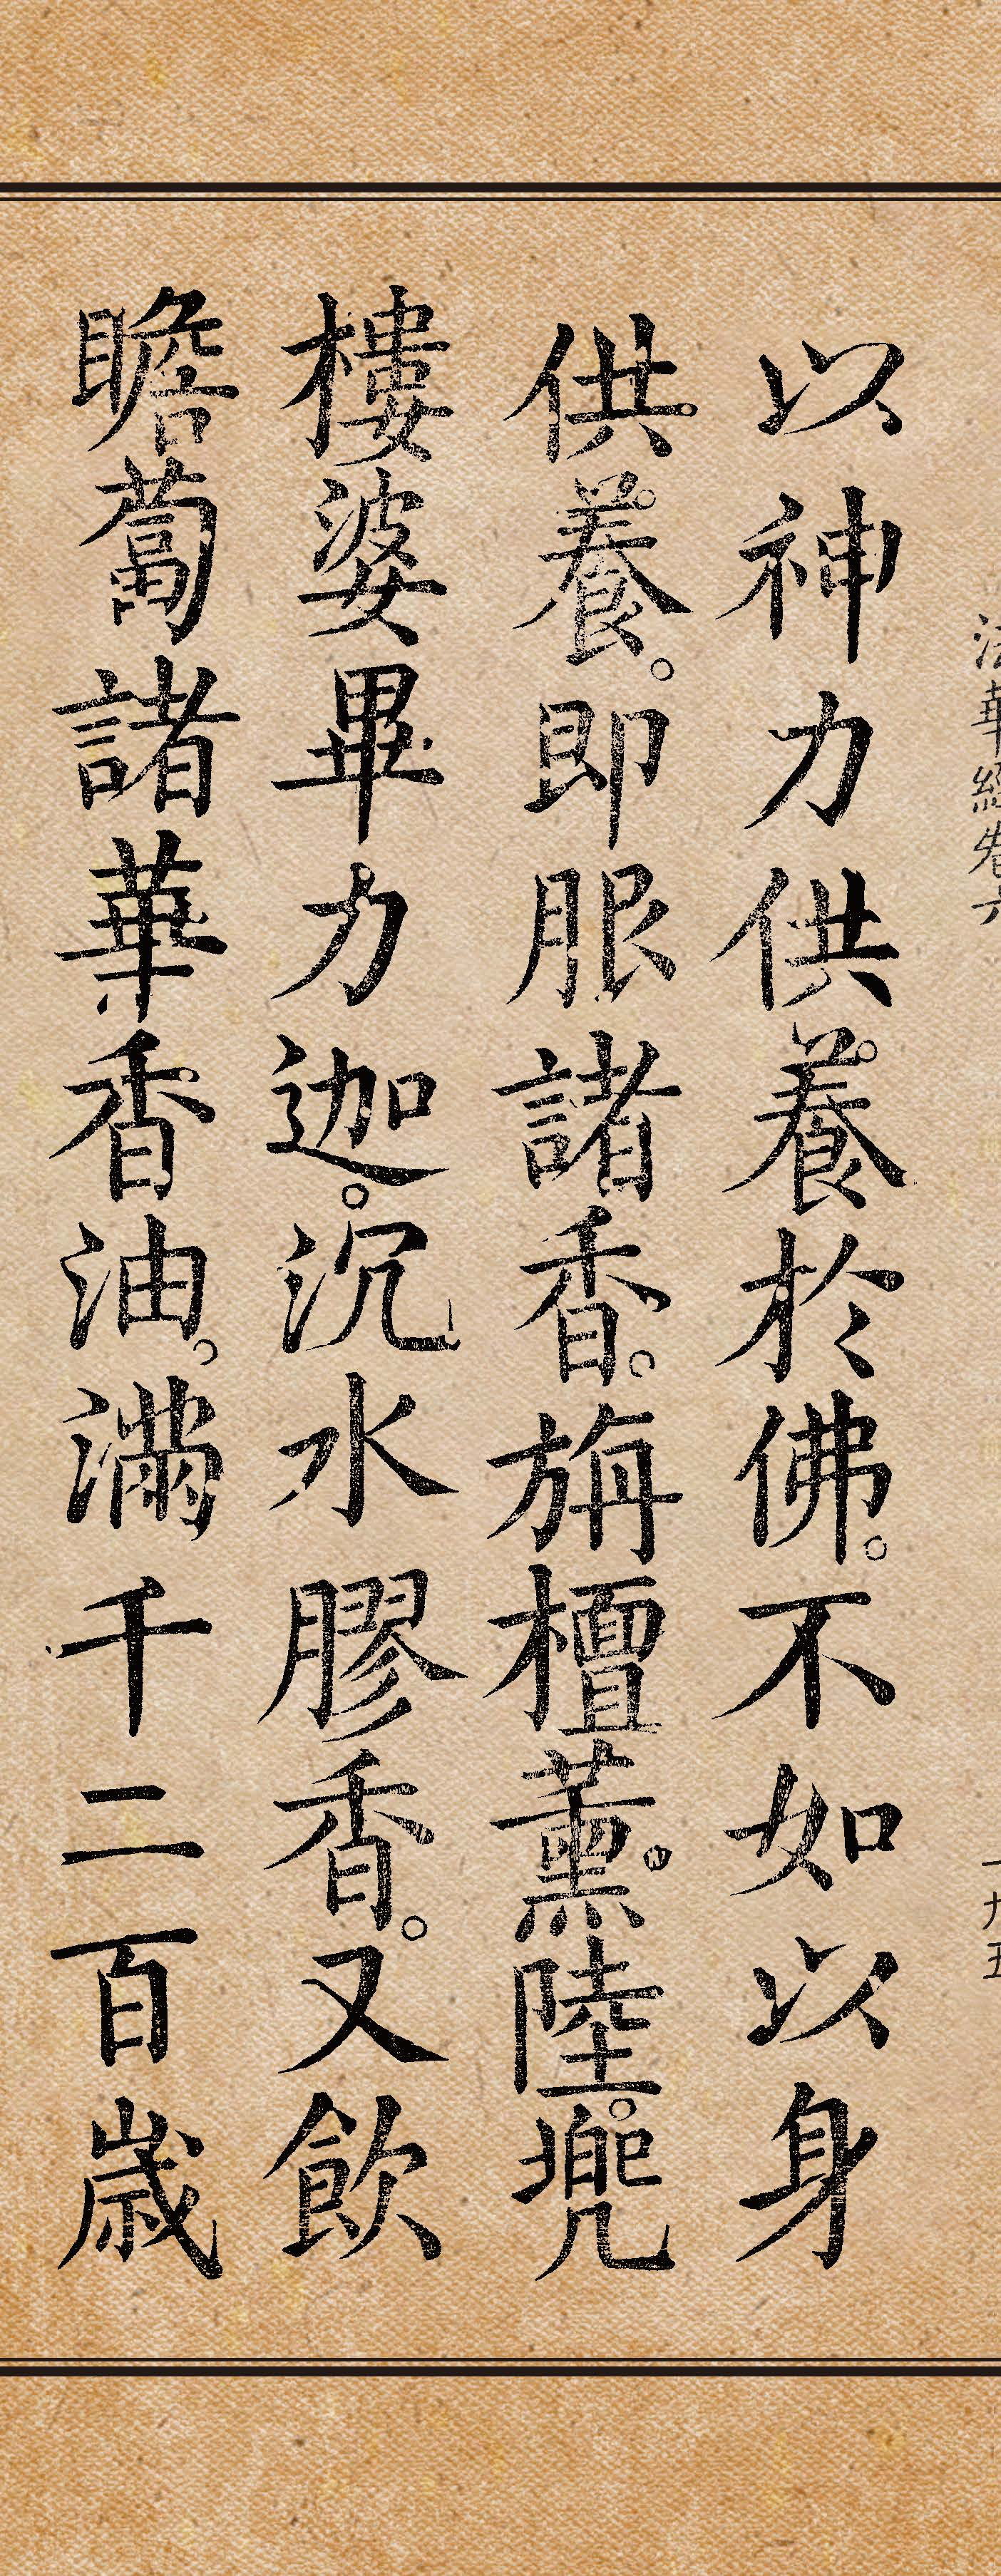 法華經卷六
一九五
以神力供養於佛。不如以身
供養。即服諸香。旃檀薰陸。兜
樓婆畢力迦。沉水膠香。又飲
瞻蔔諸華香油。滿千二百歲